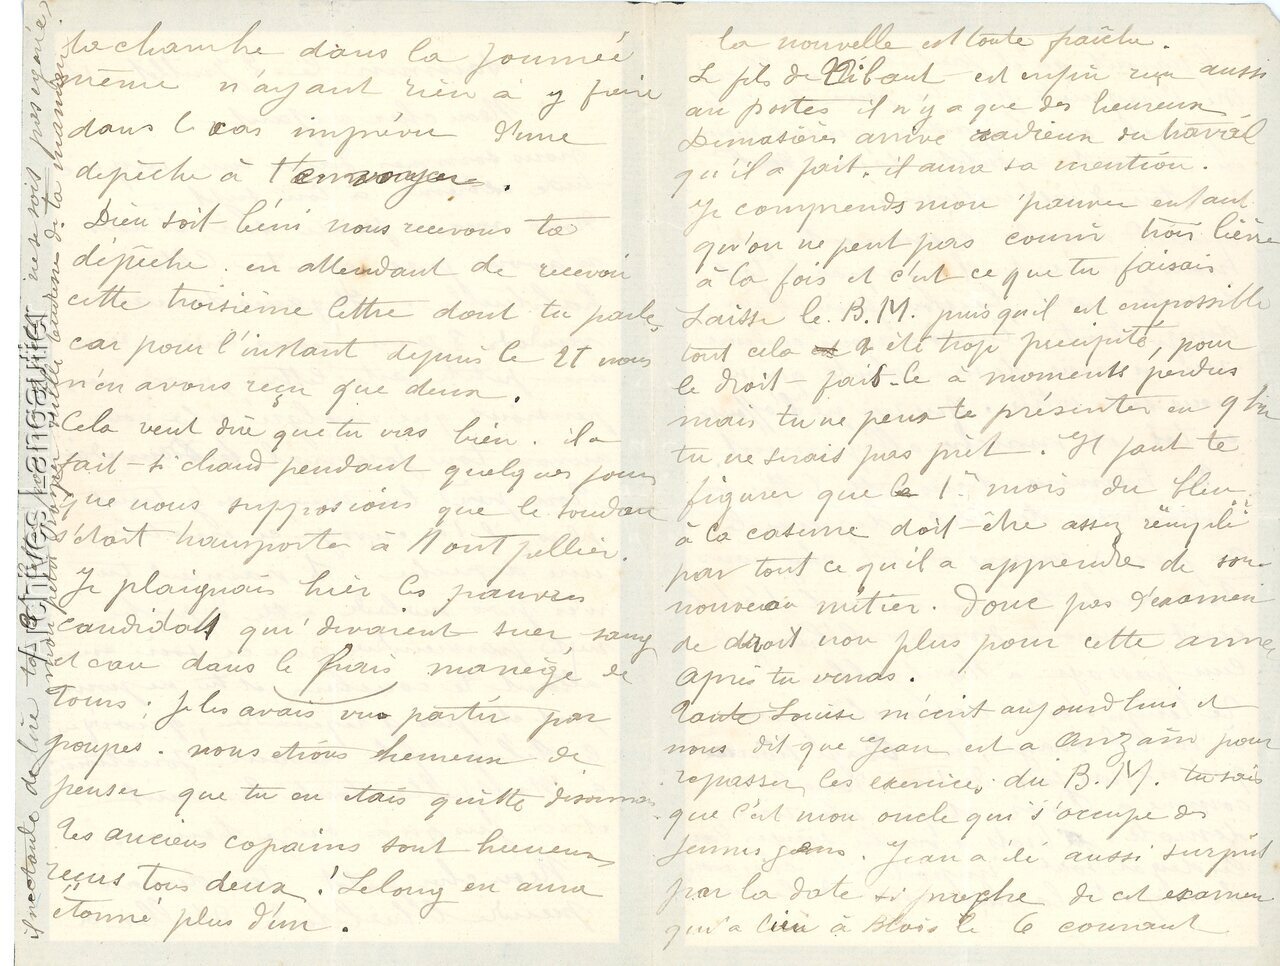 ta chambre dans la journée
même n'ayant rien à y faire
dans le cas imprévu d'une
depêche à t'envoyer.
Dieu soit béni nous recevons ta
dépêche. en attendant de recevoir
cette troisième lettre dont tu parles
car pour l'instant depuis le 21 nous
n'en avons reçu que deux.
Cela veut dire que tu vas bien. il a
fait si chaud pendant quelques jours
que nous supposions que le soudan
s'était transporter à Montpellier.
Je plaignais hier les pauvres
candidats qui devaient suer sang
et eau dans le frais manège de
Tours. Je les avais vus partir par
groupes. nous étions heureux de
penser que tu en étais quitte désormais
Les anciens copains sont heureux
reçus tous deux! Lelong en aura
étonné plus d'un.
la nouvelle est toute fraîche.
Le fils de Thibaut est enfin reçu aussi
au postes il n'y a que des heureux
Demasières arrive radieux du travail
qu'il a fait. il aura sa mention.
Je comprends mon pauvre enfant
qu'on ne peut pas courir trois lièvres
à la fois et c'est ce que tu faisais
Laisse le B.M. puisqu'il est impossible
tout cela a été trop précipité, pour
le droit fais-le à moments perdus
mais tu ne peux te présenter en 9bre
tu ne serais pas prêt. Il faut te
figurer que le 1er mois du bleu
à la caserne doit-être assez rempli
par tout ce qu'il a apprendre de son
nouveau métier. Donc pas d'examen
de droit non plus pour cette année
Après tu verras.
Tante Louise m'écrit aujourd'hui et
nous dit que Jean est a Anzain pour
repasser les exercices du B.M. tu sais
que c'est mon oncle qui s'occupe des
jeunes gens. Jean a été aussi surpris
par la date si proche de cet examen
qui a lieu à Blois le 6 courant
il me tarde de lire ta lettre
ne se sois pas égarée
mon petit
de ta maman